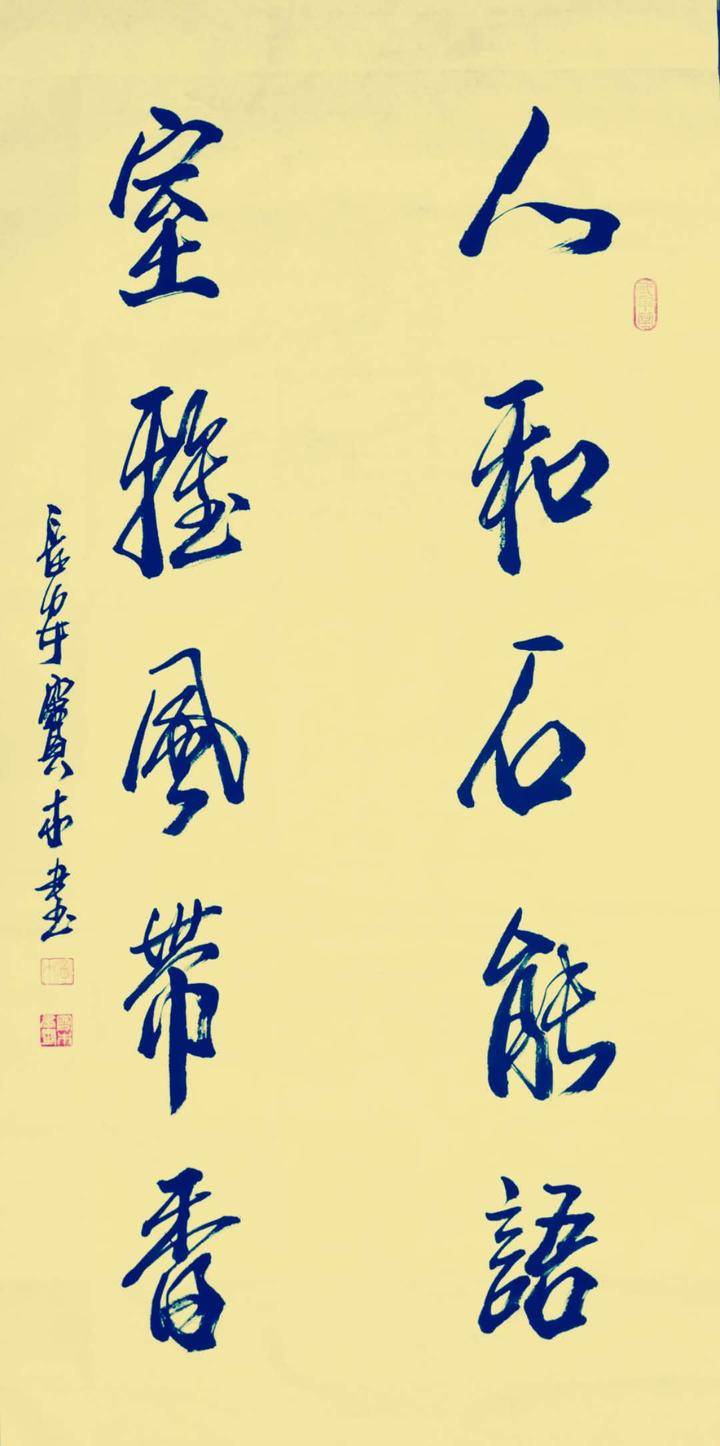 人和石能語
室雅風帶香
長弓寶本書